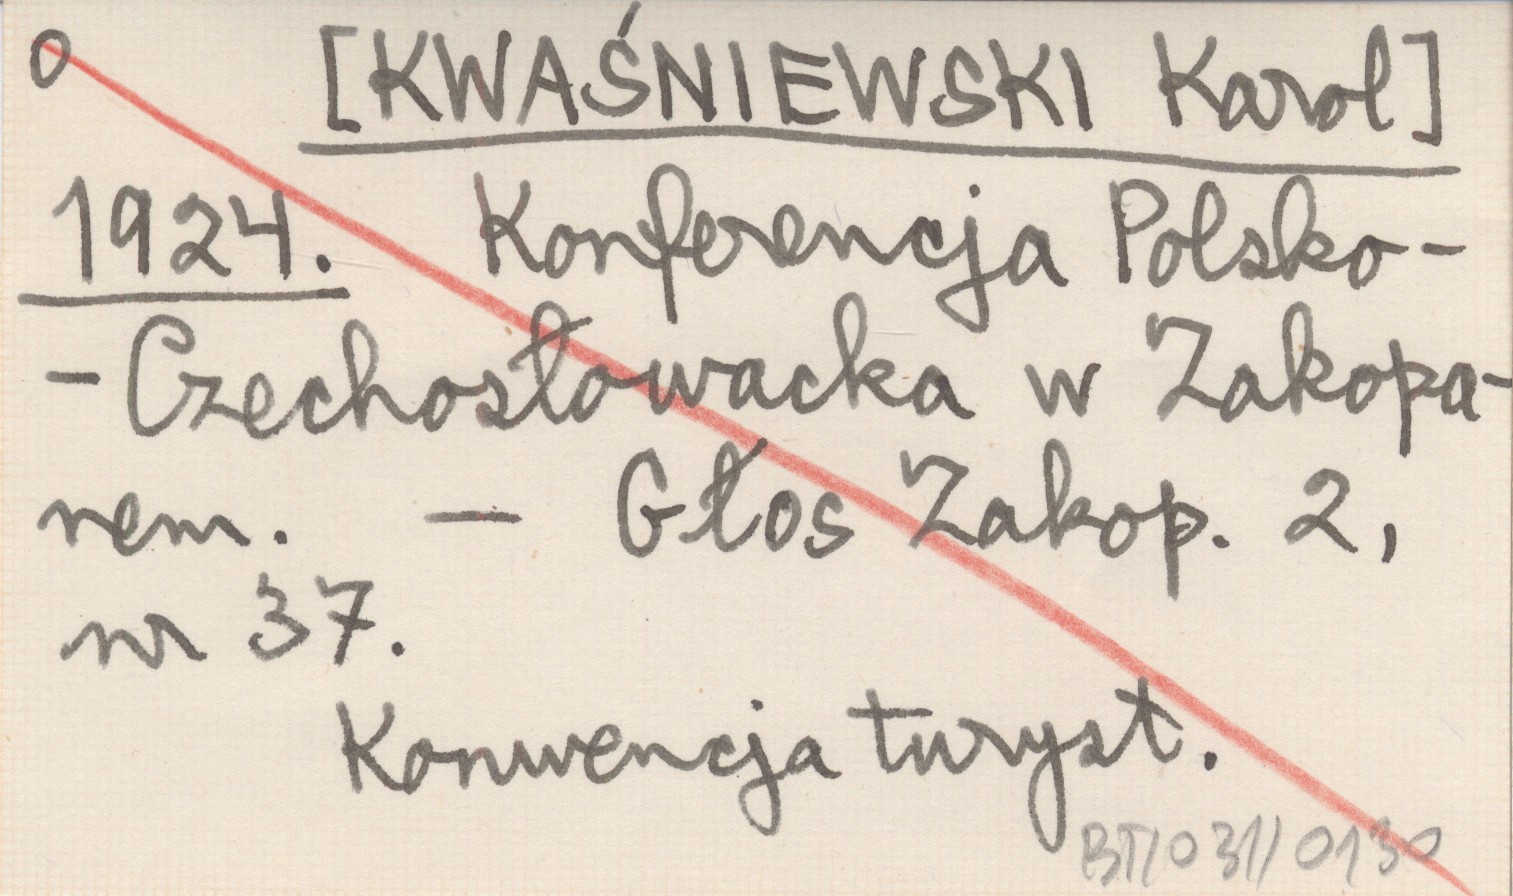 o [KWAŚNIEWSKI Karol]
1924. Konferencja Polsko-
-Czechosłowacka w Zakopa-
nem. — Głos Zakop. 2,
nr 37.
Konwencja turyst.
BT/031/0130